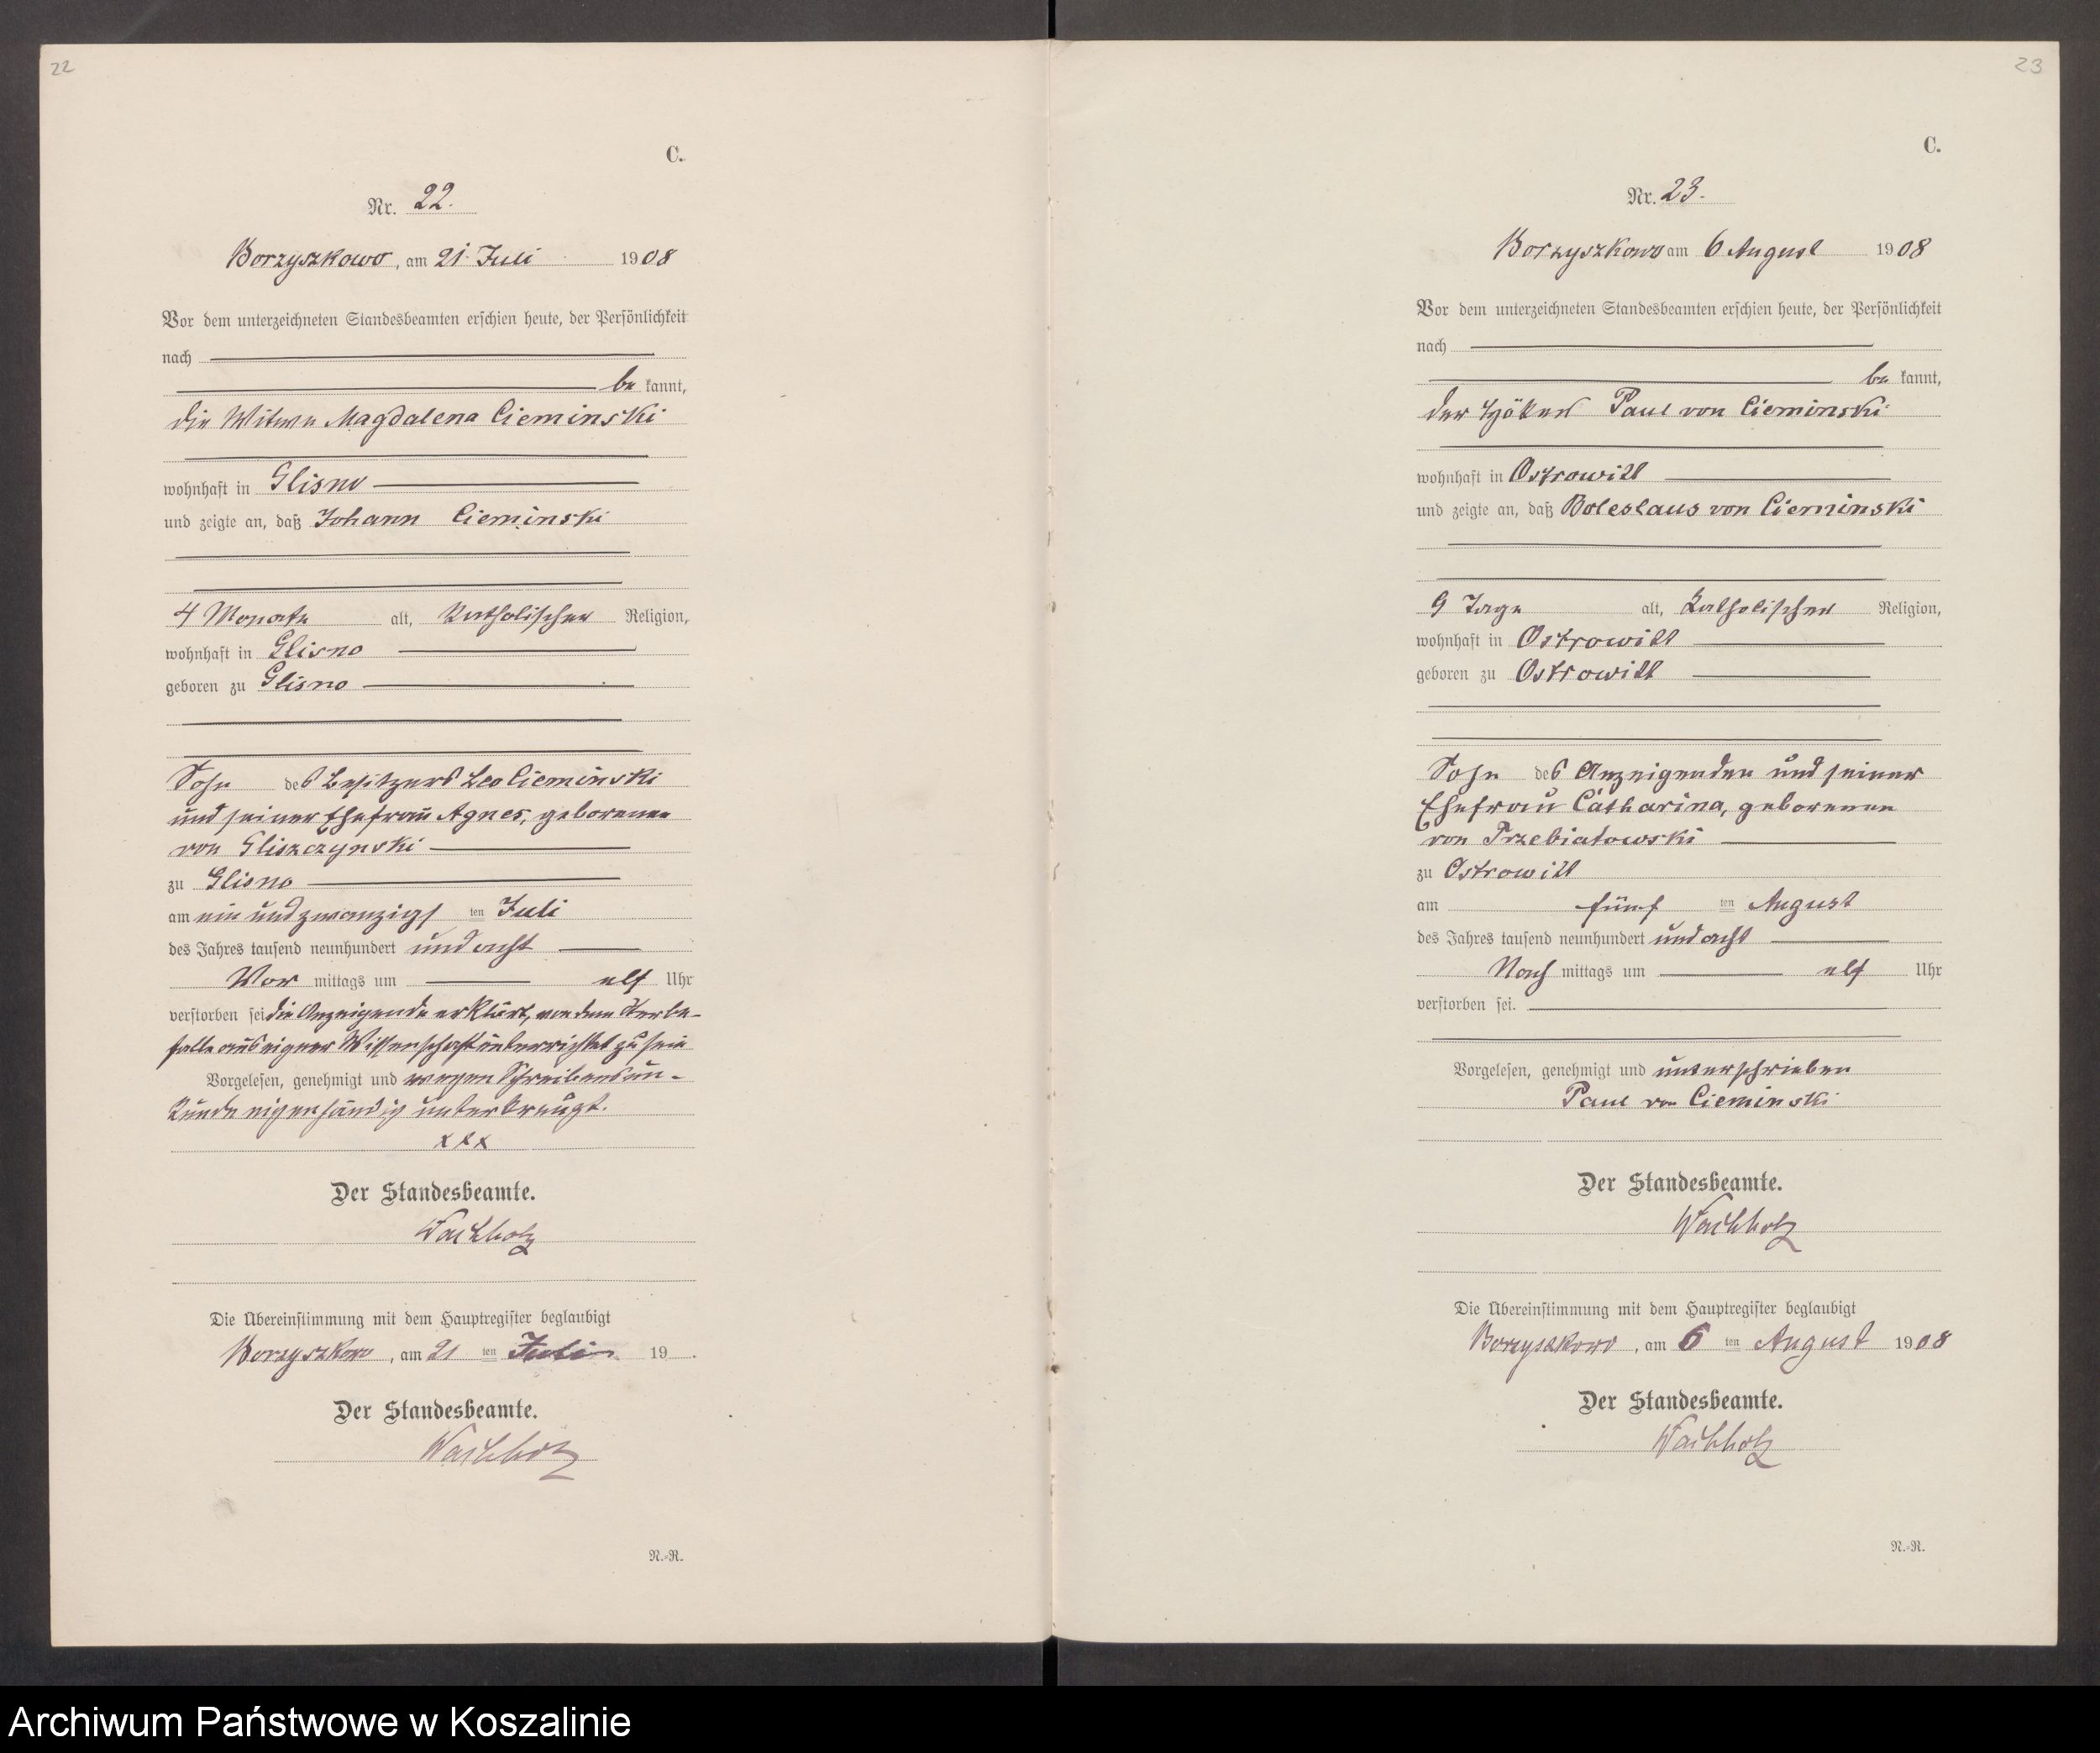 22
C.
Nr. 22.
Borzyszkowo, am 21. Juli 1908
Vor dem unterzeichneten Standesbeamten erschien heute, der Persönlichkeit
nach
be kannt,
die Witwe Magdalena Cieminski
wohnhaft in Glisno
und zeigte an, daß Johann Cieminski
4 Monate alt, katholischer Religion,
wohnhaft in Glisno
geboren zu Glisno
Sohn des Besitzers Leo Cieminski
und seiner Ehefrau Agnes, geborenen
von Gliszczynski
zu Glisno
am ein und zwanzigsten Juli
des Jahres tausend neunhundert und acht
Vor mittags um elf Uhr
verstorben sei die Anzeigende erklärt, von dem Sterbe-
falle aus eigner Wissenschaft unterrichtet zu sein
Vorgelesen, genehmigt und wegen Schreibensun-
kunde eigenhändig unterkreuzt.
xxx
Der Standesbeamte.
Wachholz
Die Übereinstimmung mit dem Hauptregister beglaubigt
Borzyszkowo, am 21 ten Juli 19 .
Der Standesbeamte.
Wachholz
N.-R.
23
C.
Nr. 23.
Borzyszkowo am 6 August 1908
Vor dem unterzeichneten Standesbeamten erschien heute, der Persönlichkeit
nach
be kannt,
der Paul von Cieminski
wohnhaft in Ostrowitt
und zeigte an, daß Boleslaus von Cieminski
9 Tage alt, katholischer Religion,
wohnhaft in Ostrowitt
geboren zu Ostrowitt
Sohn des Anzeigenden und seiner
Ehefrau Catharina, geborenen
von Przebiatowski
zu Ostrowitt
am fünf ten August
des Jahres tausend neunhundert und acht
Nach mittags um elf Uhr
verstorben sei.
Vorgelesen, genehmigt und unterschrieben
Paul von Cieminski
Der Standesbeamte.
Wachholz
Die Übereinstimmung mit dem Hauptregister beglaubigt
Borzyszkowo, am 6 ten August 1908
Der Standesbeamte.
Wachholz
N.-R.
Archiwum Państwowe w Koszalinie